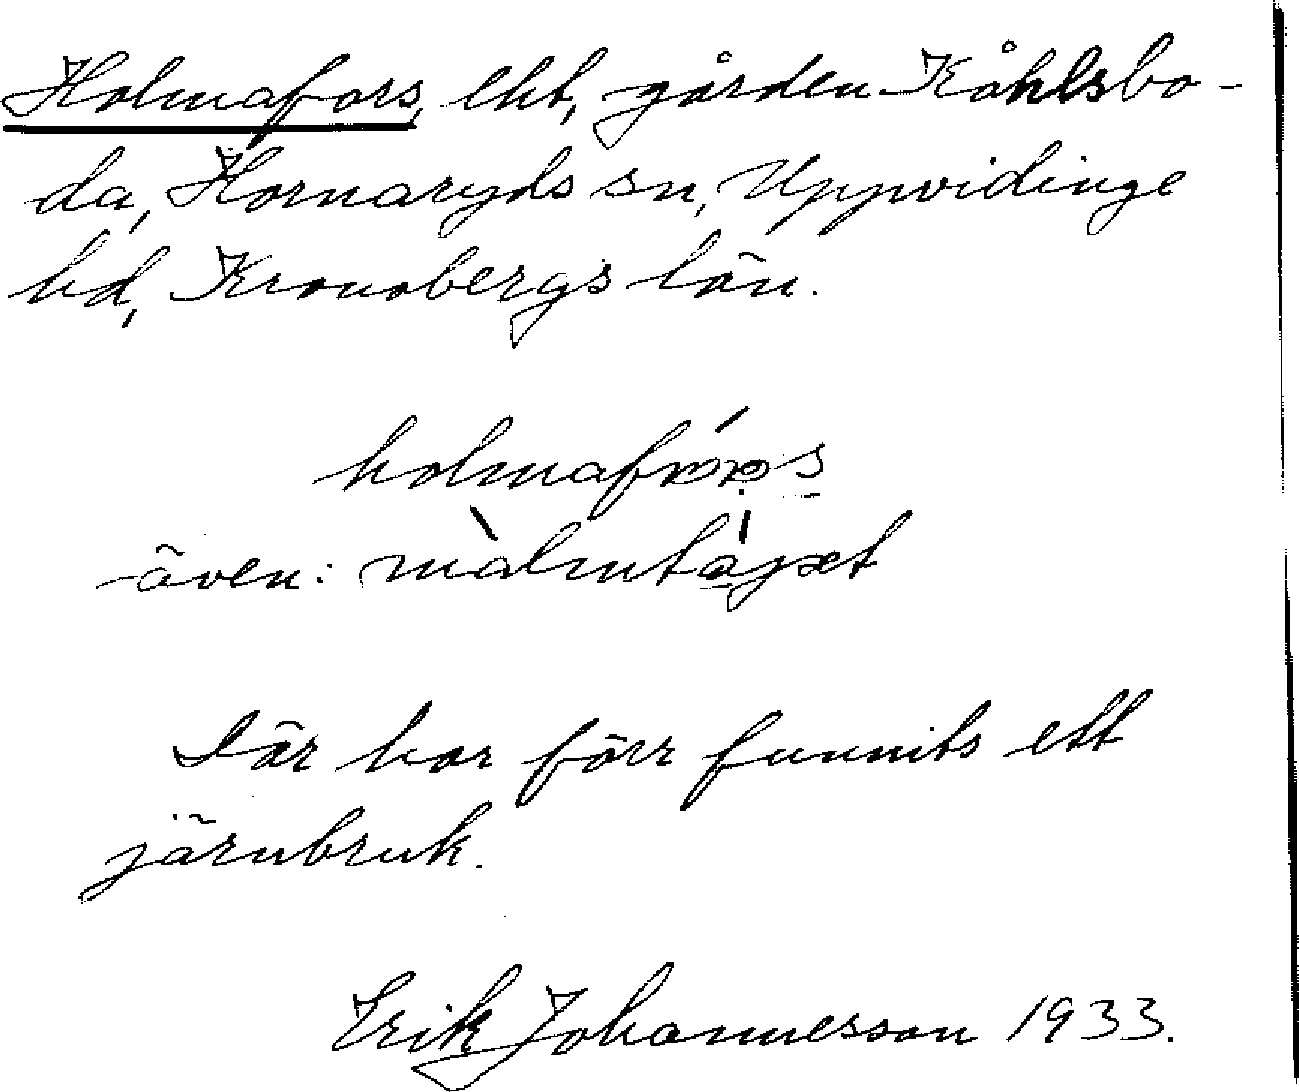 Holmafors, lht, gården Kåhlsbo-
da, Hornaryds sn, Uppvidinge
hd, Kronobergs län.
även:
Där har förr funnits ett
järnbruk.
Erik Johannesson 1933.